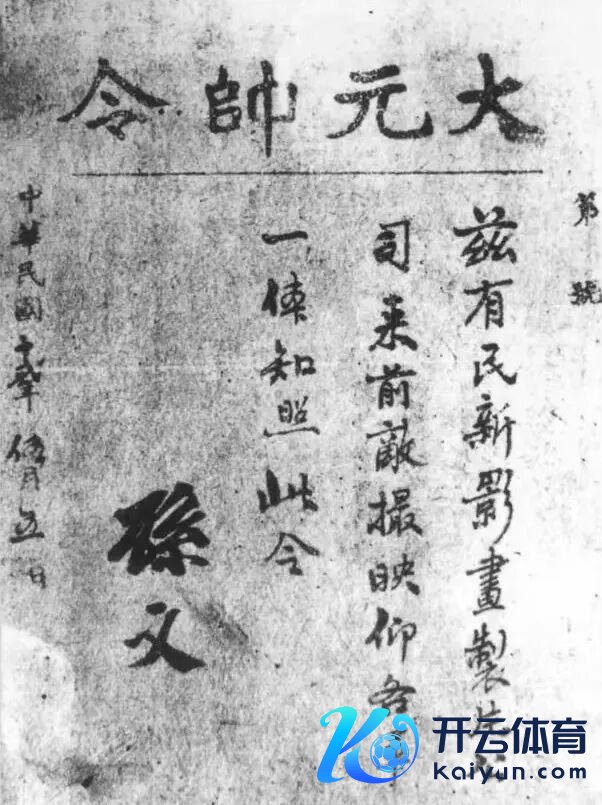 大元帥令
第 號
茲有民新影畫製片公
司來前敵撮映仰各
一体知照此令
孫文
中華民國 年 月五日
开云体育
kaiyun.com